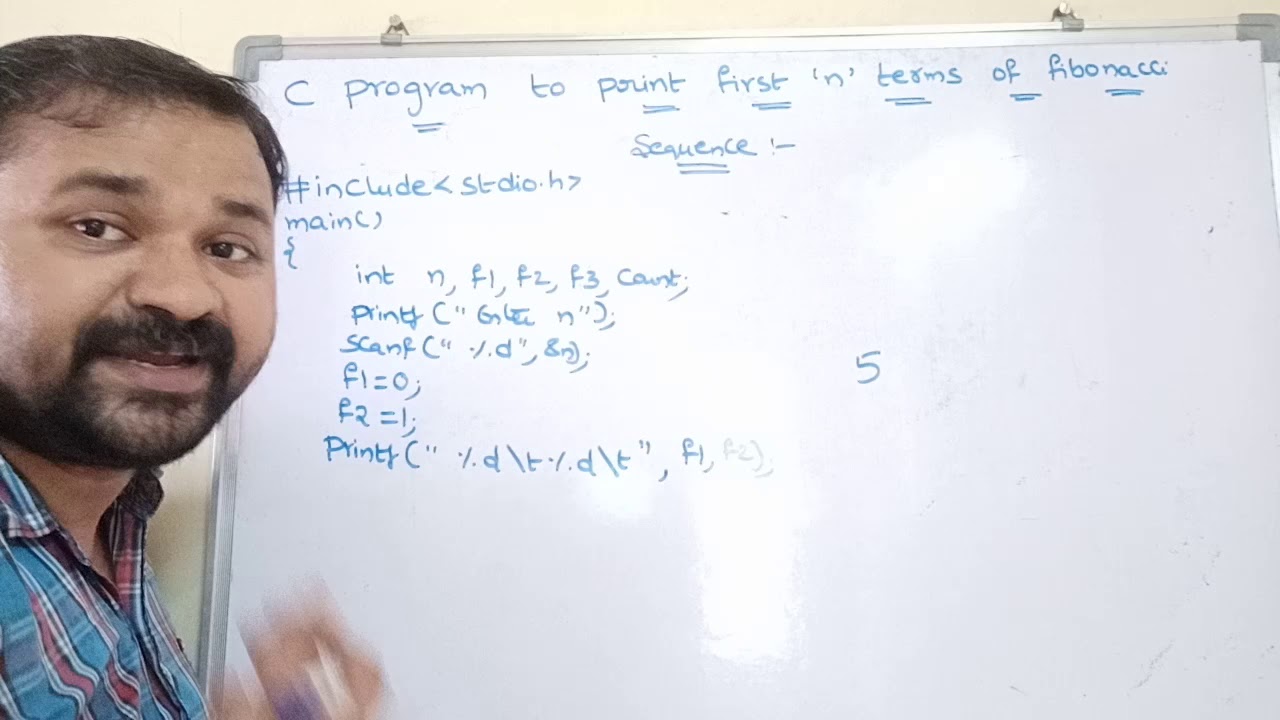 C program to print first 'n' terms of fibonacci
Sequence :-
#include<stdio.h>
main()
{
int n, f1, f2, f3, count;
printf(" Enter n");
scanf(" %d", &n);
f1=0;
f2=1;
Printf(" %d\t%d\t", f1, f2);
5